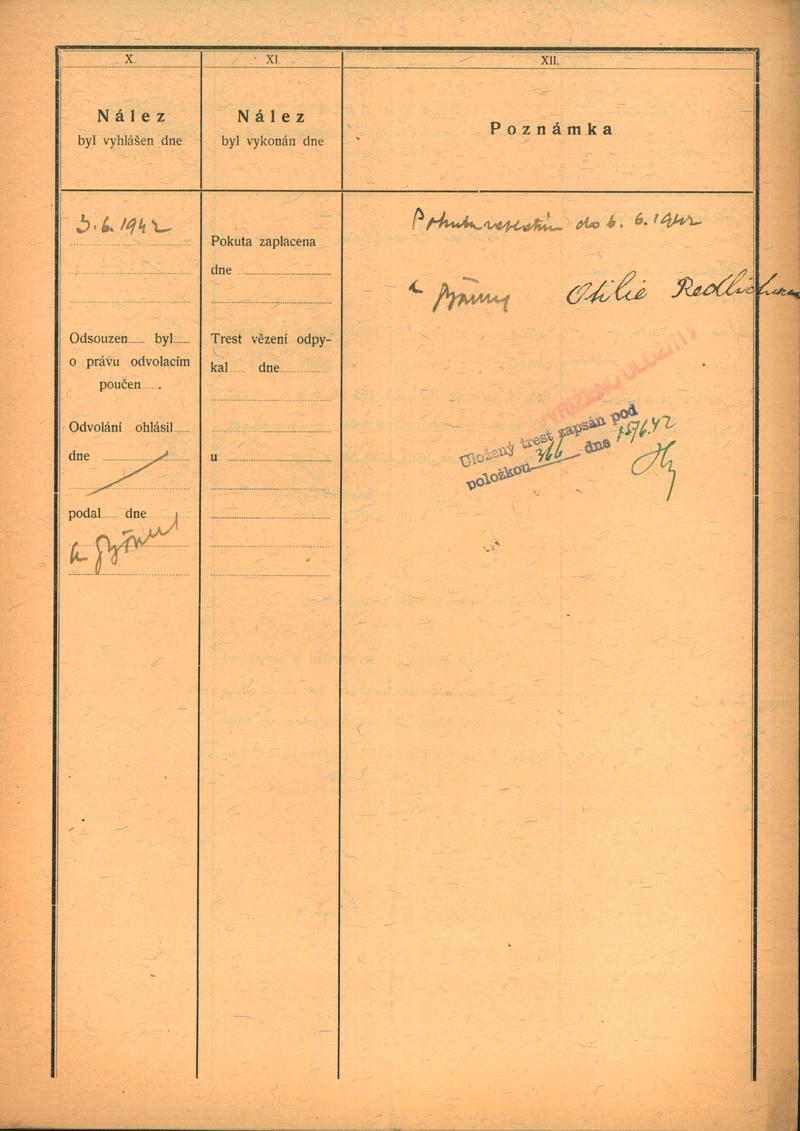 X.
Nález
byl vyhlášen dne
3.6.1942
Odsouzen byl
o právu odvolacím
poučen
Odvolání ohlásil
dne
podal dne
XI.
Nález
byl vykonán dne
Pokuta zaplacena
dne
Trest vězení odpy-
kal dne
u
XII.
Poznámka
Pokuta do 6. 6. 1942
Otilie Redlichová
VYŘÍZENO ULOŽITI
Uložený trest zapsán pod
položkou 366 dne 15/6.42